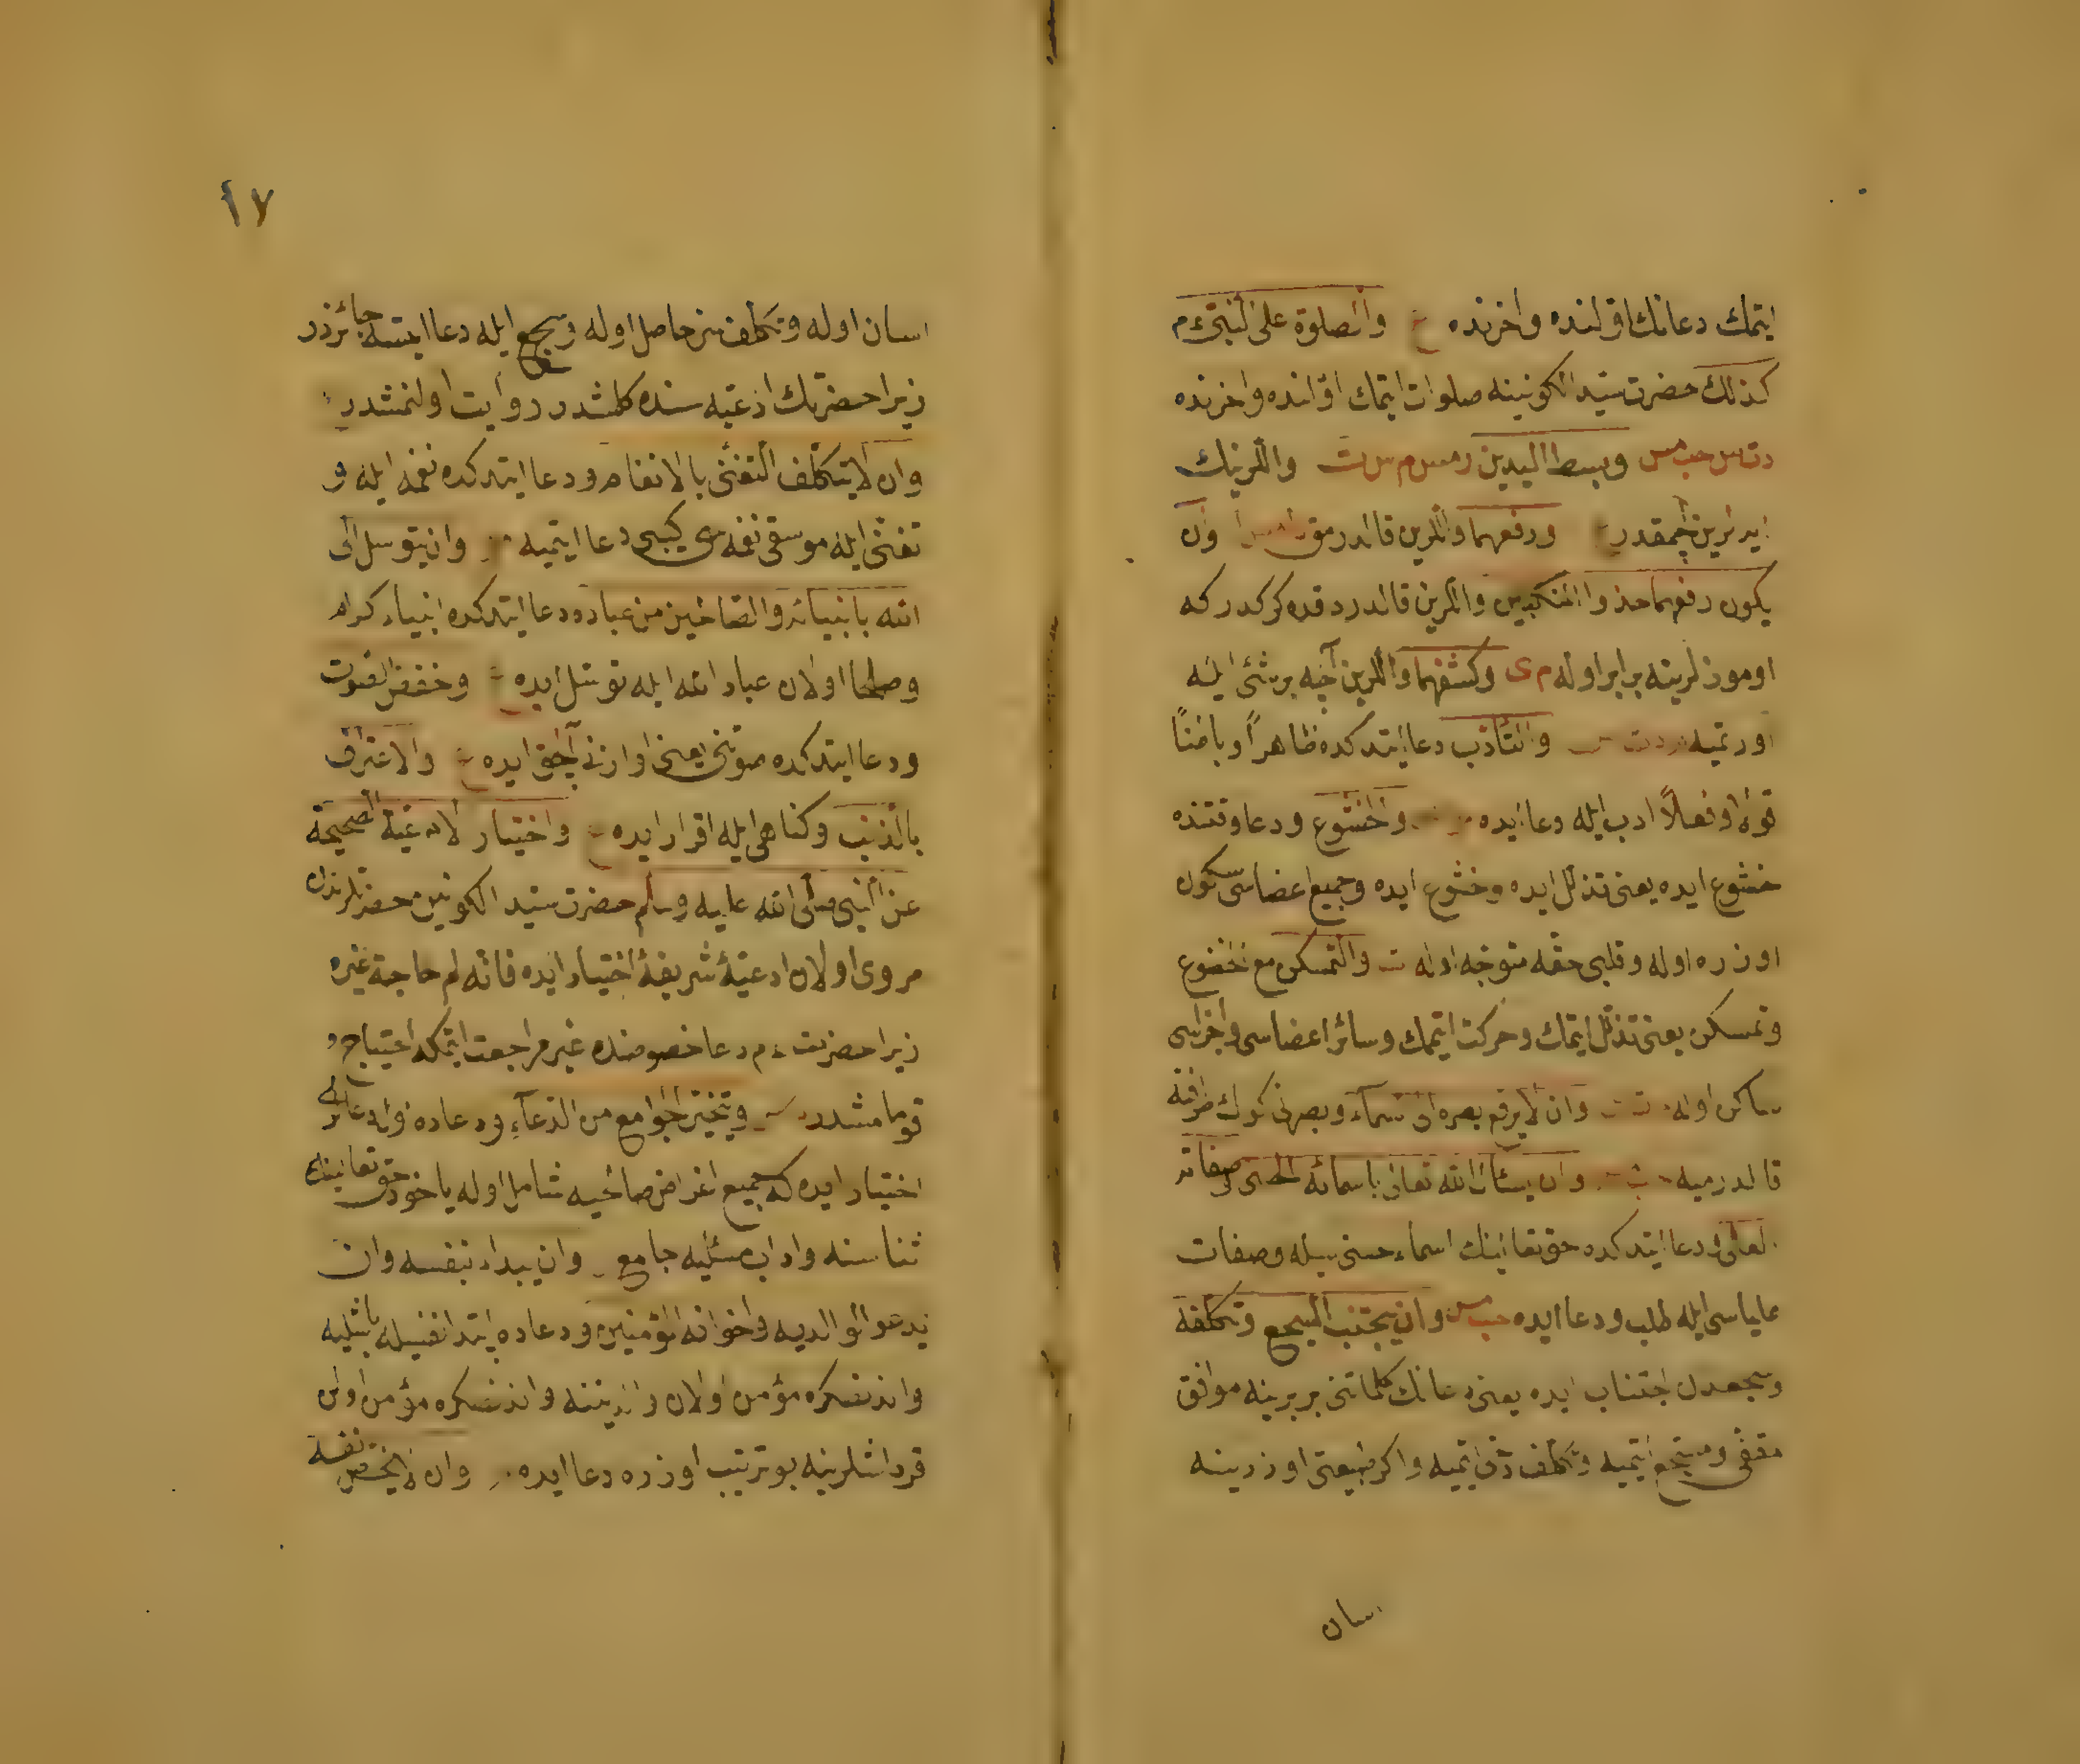 ايتمك دعانك اولنده واخرنده ع والصلوة على النبى ءم
كذلك حضرت سيد الكونينه صلوات ايتمك اولنده واخرنده
دت س حب مس وبسط اليدين ومس م س ت واللرينك
ايدلرين اچمقدر ع ورفعهما واللرين قالدرمق وان
يكون رفعهما حذو المنكبين واللرين قالدردقده كركدر كه
اوموزلرينه برابر اوله م ى وكشفهما واللرين آچه برشئ ايله
اورتميه والتأدب دعا ايتدكده ظاهراً وباطناً
قولاً وفعلاً ادب ايله دعا ايده والخشوع ودعا وقتنده
خشوع ايده يعنى تذلل ايده وخشوع ايده وجميع اعضاسى سكون
اوزره اوله وقلبى حقه متوجه اوله ت والتمسكن مع الخضوع
وتمسكن يعنى تذلل ايتمك وحركت ايتمك وسائر اعضاسى واجزاسى
ساكن اوله ت وان لا يرفع بصره الى السماء وبصرنى كوك طرفنه
قالدرميه وان يسئل الله تعالى باسمائه الحسنى وصفاته
العلى دعا ايتدكده حق تعالينك اسماء حسنى سيله وصفات
علياسى ايله طلب ودعا ايده حب مس وان يجتنب السجع وتكلفه
وسجعدن اجتناب ايده يعنى دعانك كلماتنى بربرينه موافق
مقفى ومسجع ايتميه وتكلف دخى ايتميه واكر طبيعتى اوزرينه
اسان
١٧
اسان اوله وتكلف سز حاصل اوله وسجع ايله دعا ايتسه جائزدر
زيرا حضرتك ادعيه سنده كلمشدر روايت اولنمشدر
وان لا يتكلف التغنى بالانغام ودعا ايتدكده نغمه ايله و
تغنى ايله موسقى نغمه سى كيبى دعا ايتميه وان يتوسل الى
الله بانبيائه والصالحين من عباده ودعا ايتدكده انبياء كرام
وصلحا اولان عباد الله ايله توسل ايده ع وخفض الصوت
ودعا ايتدكده صوتنى يعنى اوازنى آلچق ايده ع والاعتراف
بالذنب وكناهى ايله اقرار ايده ع واختيار الادعية الصحيحة
عن النبى صلى الله عليه وسلم حضرت سيد الكونين حضرتلرندن
مروى اولان ادعيۀ شريفۀ اختيار ايده فانه لم حاجة غيره
زيرا حضرت ءم دعا خصوصنده غيره مراجعت ايتمكه احتياج
قومامشدر ويتخير الجوامع من الدعاء ودعاده شول دعالرى
اختيار ايده كه جميع اغراض صالحيه شامل اوله ياخود حق تعالينك
ثناسنه واداب مسئليه جامع وان يبداء بنفسه وان
يدعو لوالديه واخوانه المؤمنين ودعاده ابتدا نفسيله باشليه
واندنصكره مؤمن اولان والدينه واندنصكره مؤمن اولن
قرداشلرينه بو ترتيب اوزره دعا ايده وان لا يخص نفسه